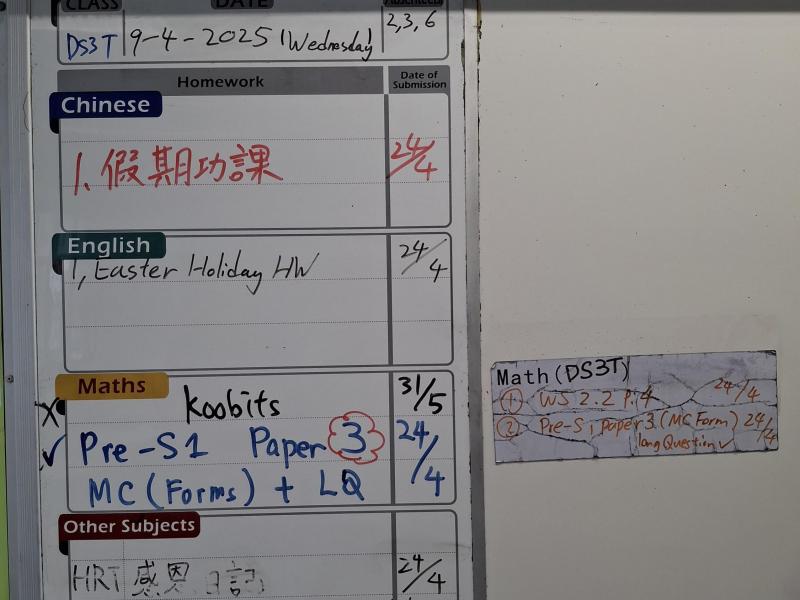 CLASS DATE Absentees
DS3T 9-4-2025 (Wednesday) 2,3,6
Homework Date of Submission
Chinese
1. 假期功課 24/4
English
1, Easter Holiday HW 24/4
Maths
Koobits 31/5
Pre-S1 Paper 3 24/4
MC (Forms) + LQ
Other Subjects
HRT 感恩日記 24/4
Math (DS3T)
① WS 2.2 P.4 24/4
② Pre-S1 paper 3 (MC Form) 24/4
long Question